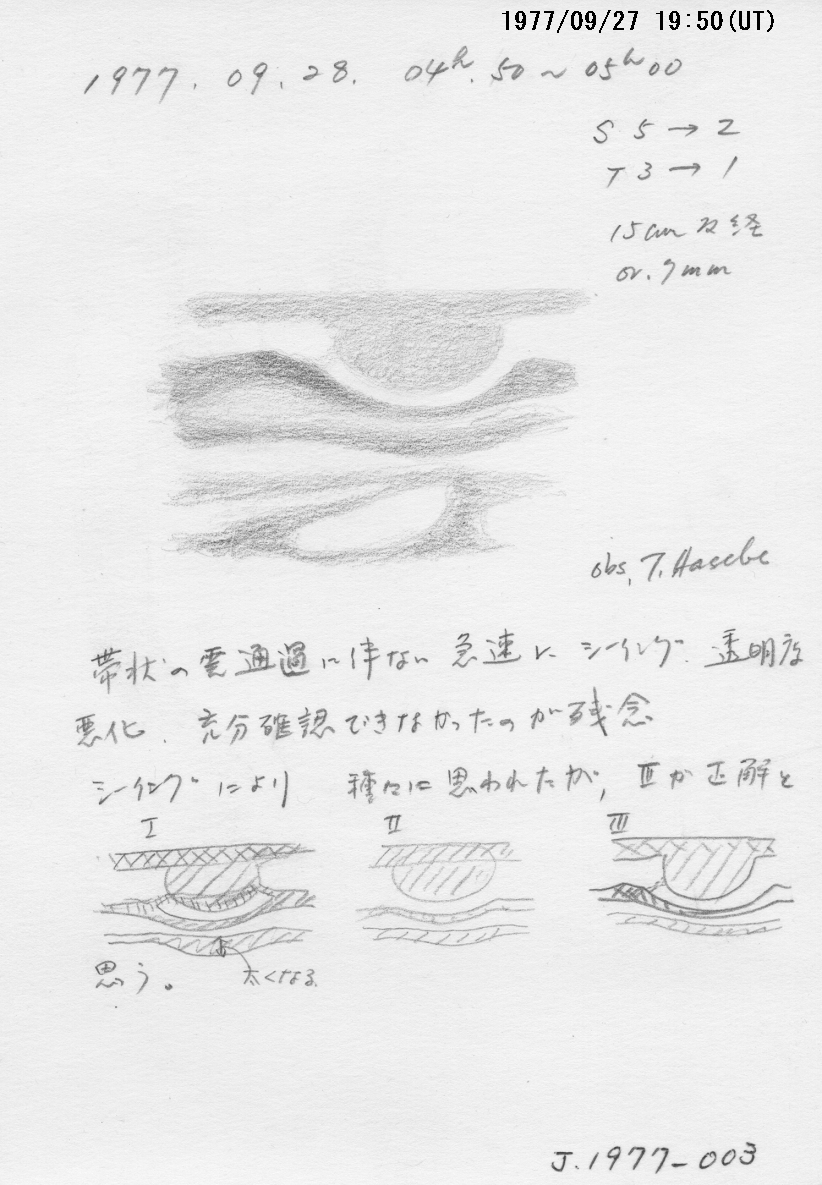 1977/09/27 19:50(UT)
1977. 09. 28. 04h. 50~05h00
S 5→2
T 3→1
15cm 反経
or. 7mm
obs, T. Hasebe
帯状の雲通過に伴ない 急速に シーイング. 透明度
悪化. 充分確認できなかったのが残念
シーイングにより 種々に思われたが, Ⅲが正解と
Ⅰ Ⅱ Ⅲ
太くなる.
思う。
J.1977-003